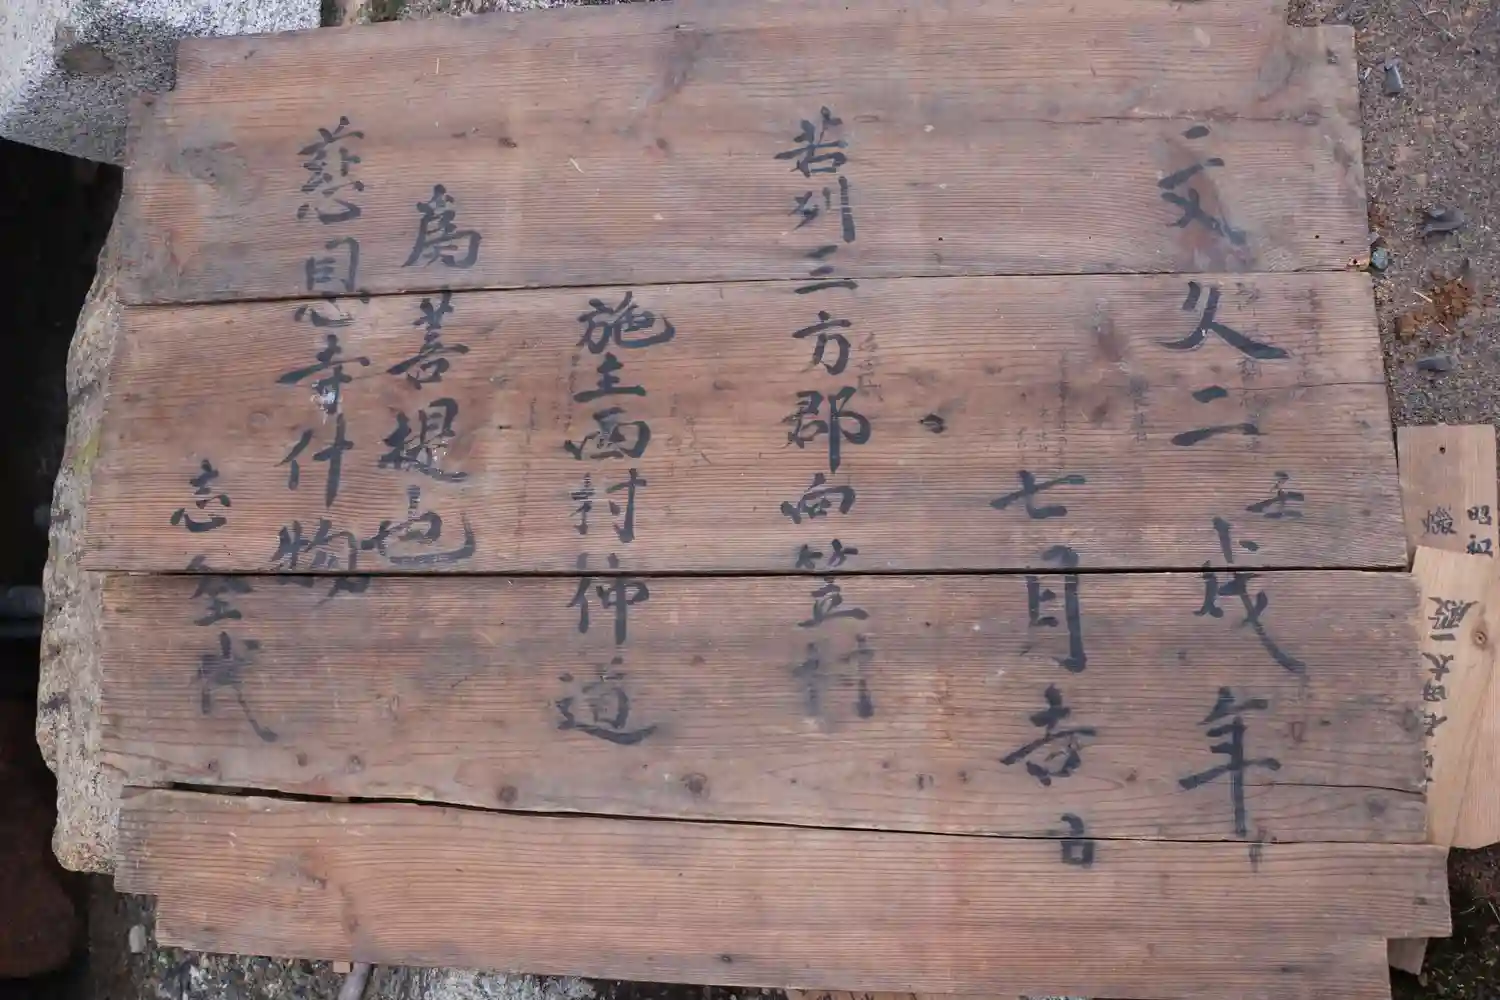 文久二壬戌年
七月吉日
若州三方郡向笠村
施主西村仲道
為菩提也
慈恩寺什物
志金代
昭和
殿